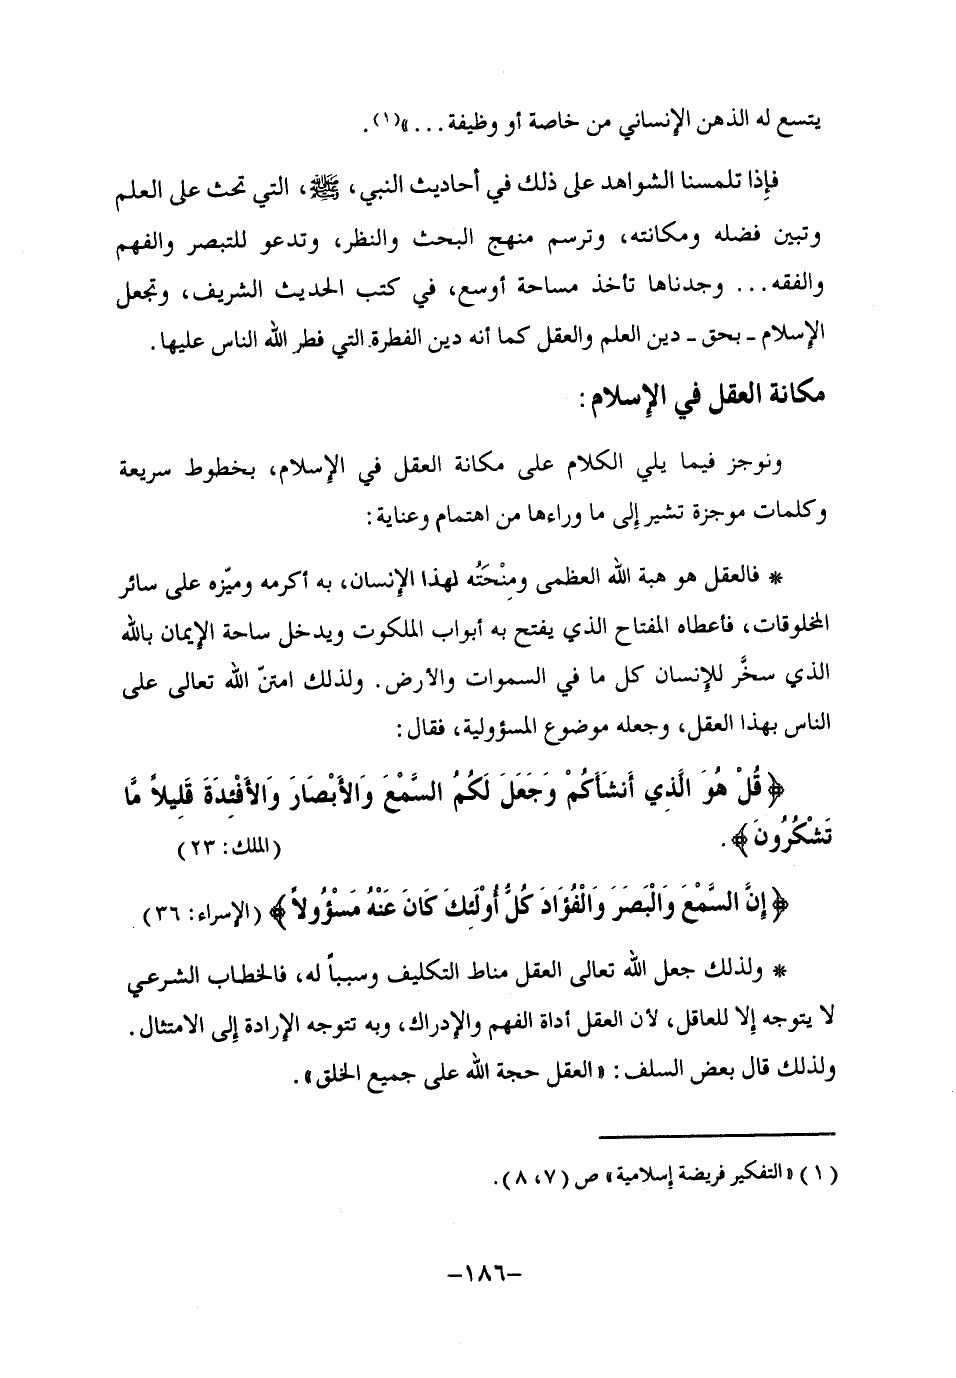 يتسع له الذهن الإنساني من خاصة أو وظيفة...»(١).
فإِذا تلمسنا الشواهد على ذلك في أحاديث النبي، ﷺ، التي تحث على العلم
وتبين فضله ومكانته، وترسم منهج البحث والنظر، وتدعو للتبصر والفهم
والفقه... وجدناها تأخذ مساحة أوسع، في كتب الحديث الشريف، وتجعل
الإسلام ـ بحق ـ دين العلم والعقل كما أنه دين الفطرة التي فطر الله الناس عليها.
مكانة العقل في الإِسلام:
ونوجز فيما يلي الكلام على مكانة العقل في الإِسلام، بخطوط سريعة
وكلمات موجزة تشير إلى ما وراءها من اهتمام وعناية:
* فالعقل هو هبة الله العظمى ومِنْحَتُه لهذا الإنسان، به أكرمه وميّزه على سائر
المخلوقات، فأعطاه المفتاح الذي يفتح به أبواب الملكوت ويدخل ساحة الإيمان بالله
الذي سخَّر للإنسان كل ما في السموات والأرض. ولذلك امتنّ الله تعالى على
الناس بهذا العقل، وجعله موضوع المسؤولية، فقال:
﴿قُلْ هُوَ الَّذِي أَنشَأَكُمْ وَجَعَلَ لَكُمُ السَّمْعَ وَالأَبْصَارَ وَالأَفْئِدَةَ قَلِيلاً مَّا
تَشْكُرُونَ﴾. (الملك: ٢٣)
﴿إِنَّ السَّمْعَ وَالْبَصَرَ وَالْفُؤَادَ كُلُّ أُوْلَئِكَ كَانَ عَنْهُ مَسْؤُولاً﴾ (الإسراء: ٣٦)
* ولذلك جعل الله تعالى العقل مناط التكليف وسبباً له، فالخطاب الشرعي
لا يتوجه إلا للعاقل، لأن العقل أداة الفهم والإدراك، وبه تتوجه الإرادة إلى الامتثال.
ولذلك قال بعض السلف: «العقل حجة الله على جميع الخلق».
(١) «التفكير فريضة إسلامية» ص (٧، ٨).
-١٨٦-